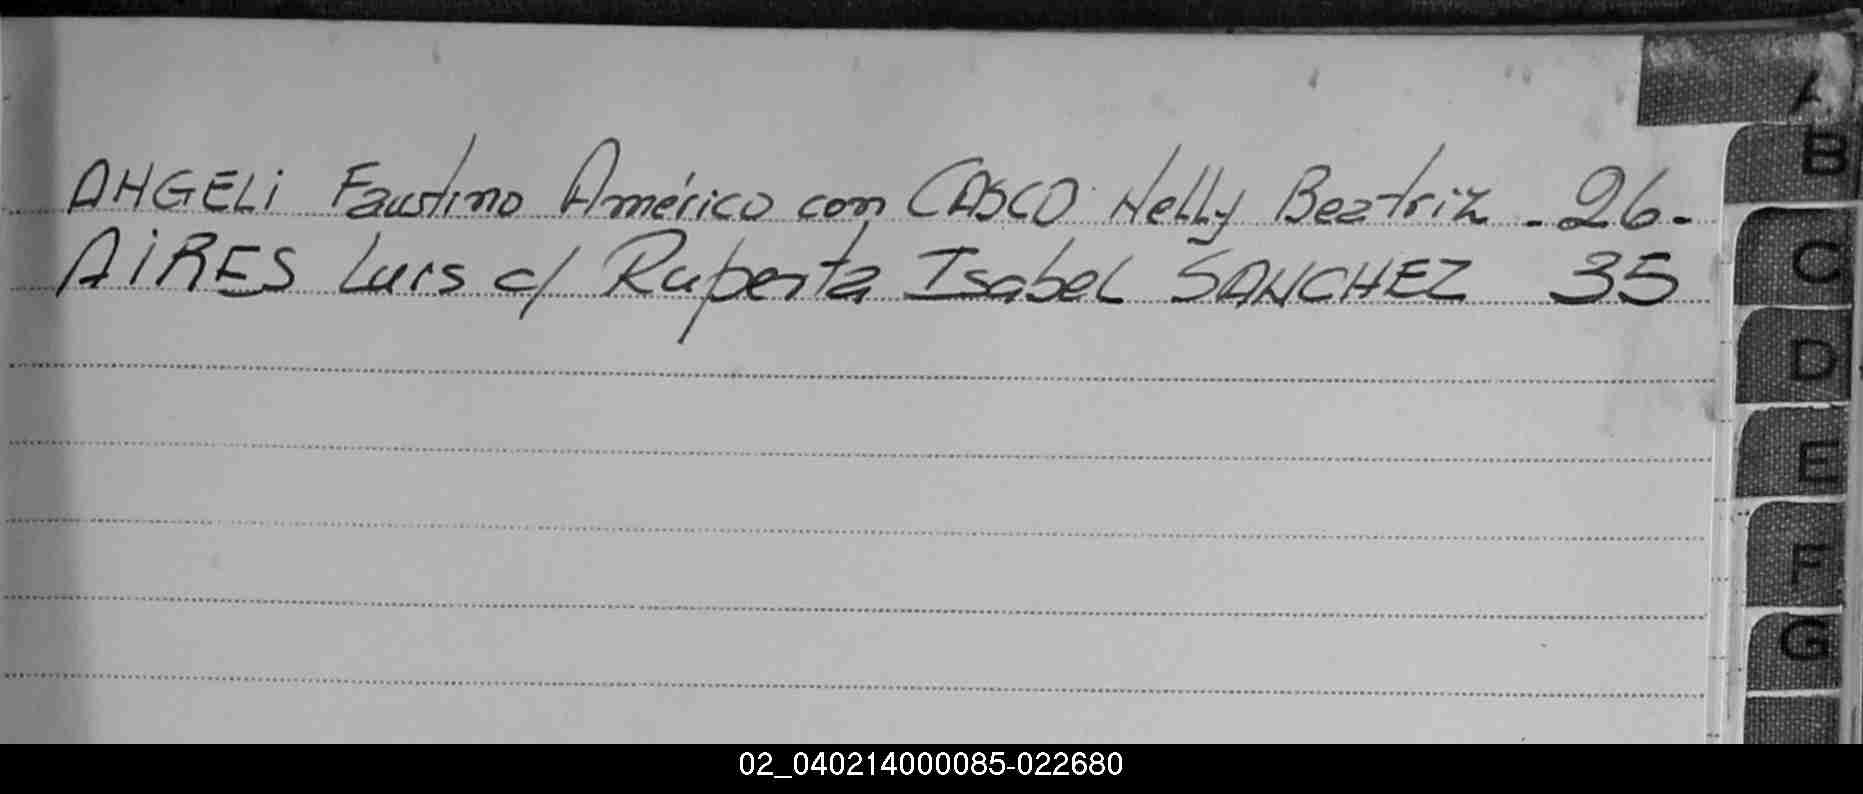 ANGELi Faustino Américo con CASCO Nelly Beatriz - 26 -
AiRES Luis c/ Ruperta Isabel SANCHEZ 35
A
B
C
D
E
F
G
02_040214000085-022680